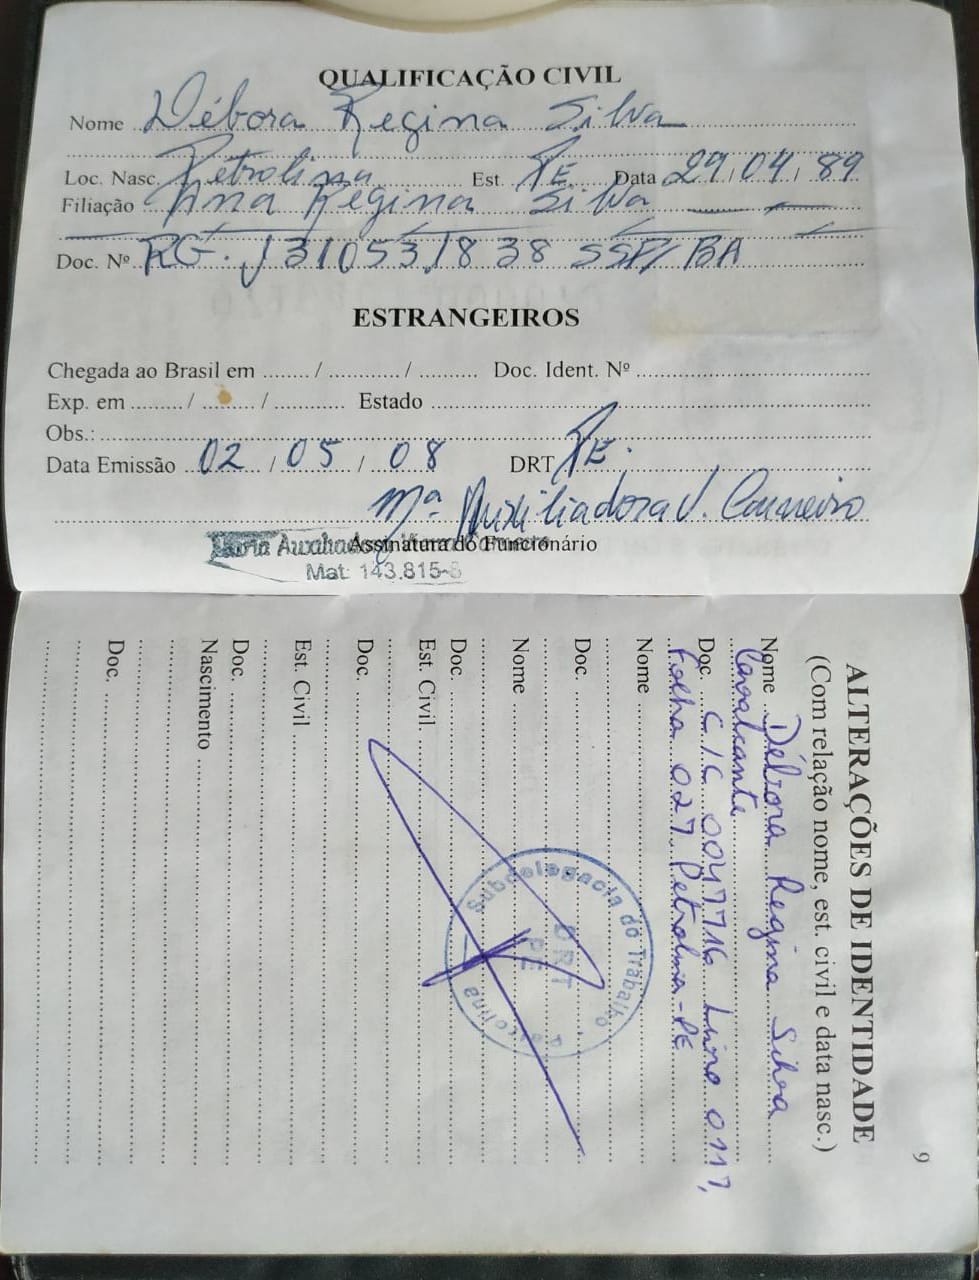 QUALIFICAÇÃO CIVIL
Nome Débora Regina Silva
Loc. Nasc. Petrolina Est. PE Data 29/04/89
Filiação Ana Regina Silva
Doc. Nº RG. 1310531838 SSP/BA
ESTRANGEIROS
Chegada ao Brasil em / / Doc. Ident. Nº
Exp. em / / Estado
Obs.:
Data Emissão 02/05/08 DRT PE.
Mª Auxiliadora V. Carneiro
Assinatura do Funcionário
Mat: 143.815-8
9
ALTERAÇÕES DE IDENTIDADE
(Com relação nome, est. civil e data nasc.)
Nome Débora Regina Silva
Cavalcante
Doc. C/C 0047716 Livro 0117,
Folha 027. Petrolina-PE
Nome
Doc.
Nome
Doc.
Est. Civil
Doc.
Est. Civil
Doc.
Nascimento
Doc.
Subdelegacia do Trabalho
DRT
PE
Petrolina